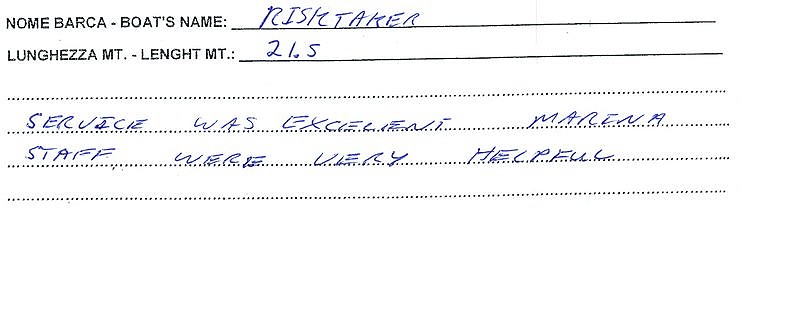 NOME BARCA - BOAT'S NAME: RISKTAKER
LUNGHEZZA MT. - LENGHT MT.: 21.5
SERVICE WAS EXCELENT MARINA
STAFF WERE VERY HELPFUL